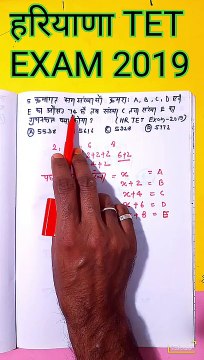 हरियाणा TET
EXAM 2019
5 क्रमागत सम संख्याओं क्रमशः A, B, C, D एवं
E का औसत 74 है तब संख्या C तथा संख्या E का
गुणनफल क्या होगा? (HR TET Exam-2019)
Ⓐ 5538 5616 Ⓒ 5328 Ⓓ 5772
2, 6 8
2+2+2 6+2
= x = A
x+2 = B
x+4 = C
x+6 = D
+8 = E